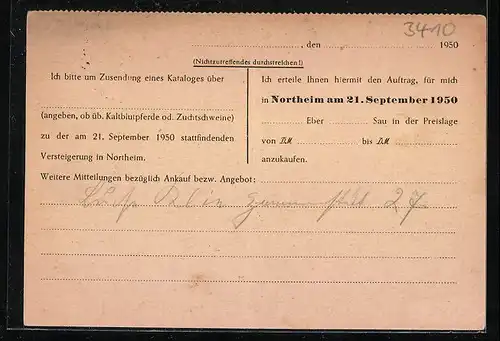 3410
, den 1950
(Nichtzutreffendes durchstreichen!)
Ich bitte um Zusendung eines Kataloges über
(angeben, ob üb. Kaltblutpferde od. Zuchtschweine)
zu der am 21. September 1950 stattfindenden
Versteigerung in Northeim.
Ich erteile Ihnen hiermit den Auftrag, für mich
in Northeim am 21. September 1950
Eber Sau in der Preislage
von DM bis DM
anzukaufen.
Weitere Mitteilungen bezüglich Ankauf bezw. Angebot:
27